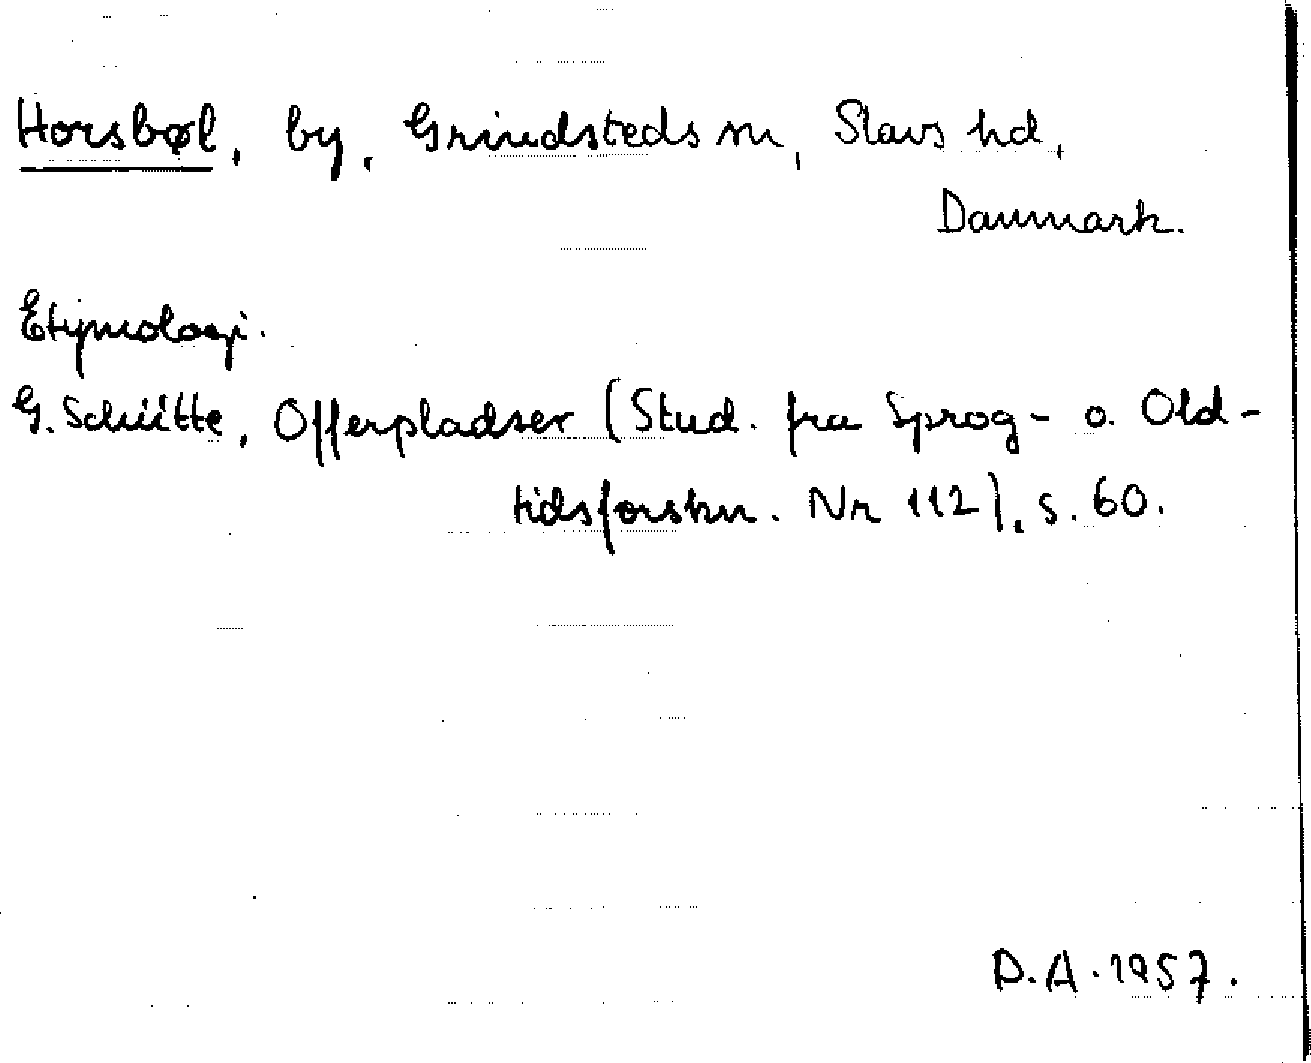 Horsbøl, by, Grindsteds sn, Slavs hd,
Danmark.
Etymologi.
G. Schütte, Offerpladser (Stud. fra Sprog- o. Old-
tidsforskn. Nr 112), s. 60.
D.A. 1957.